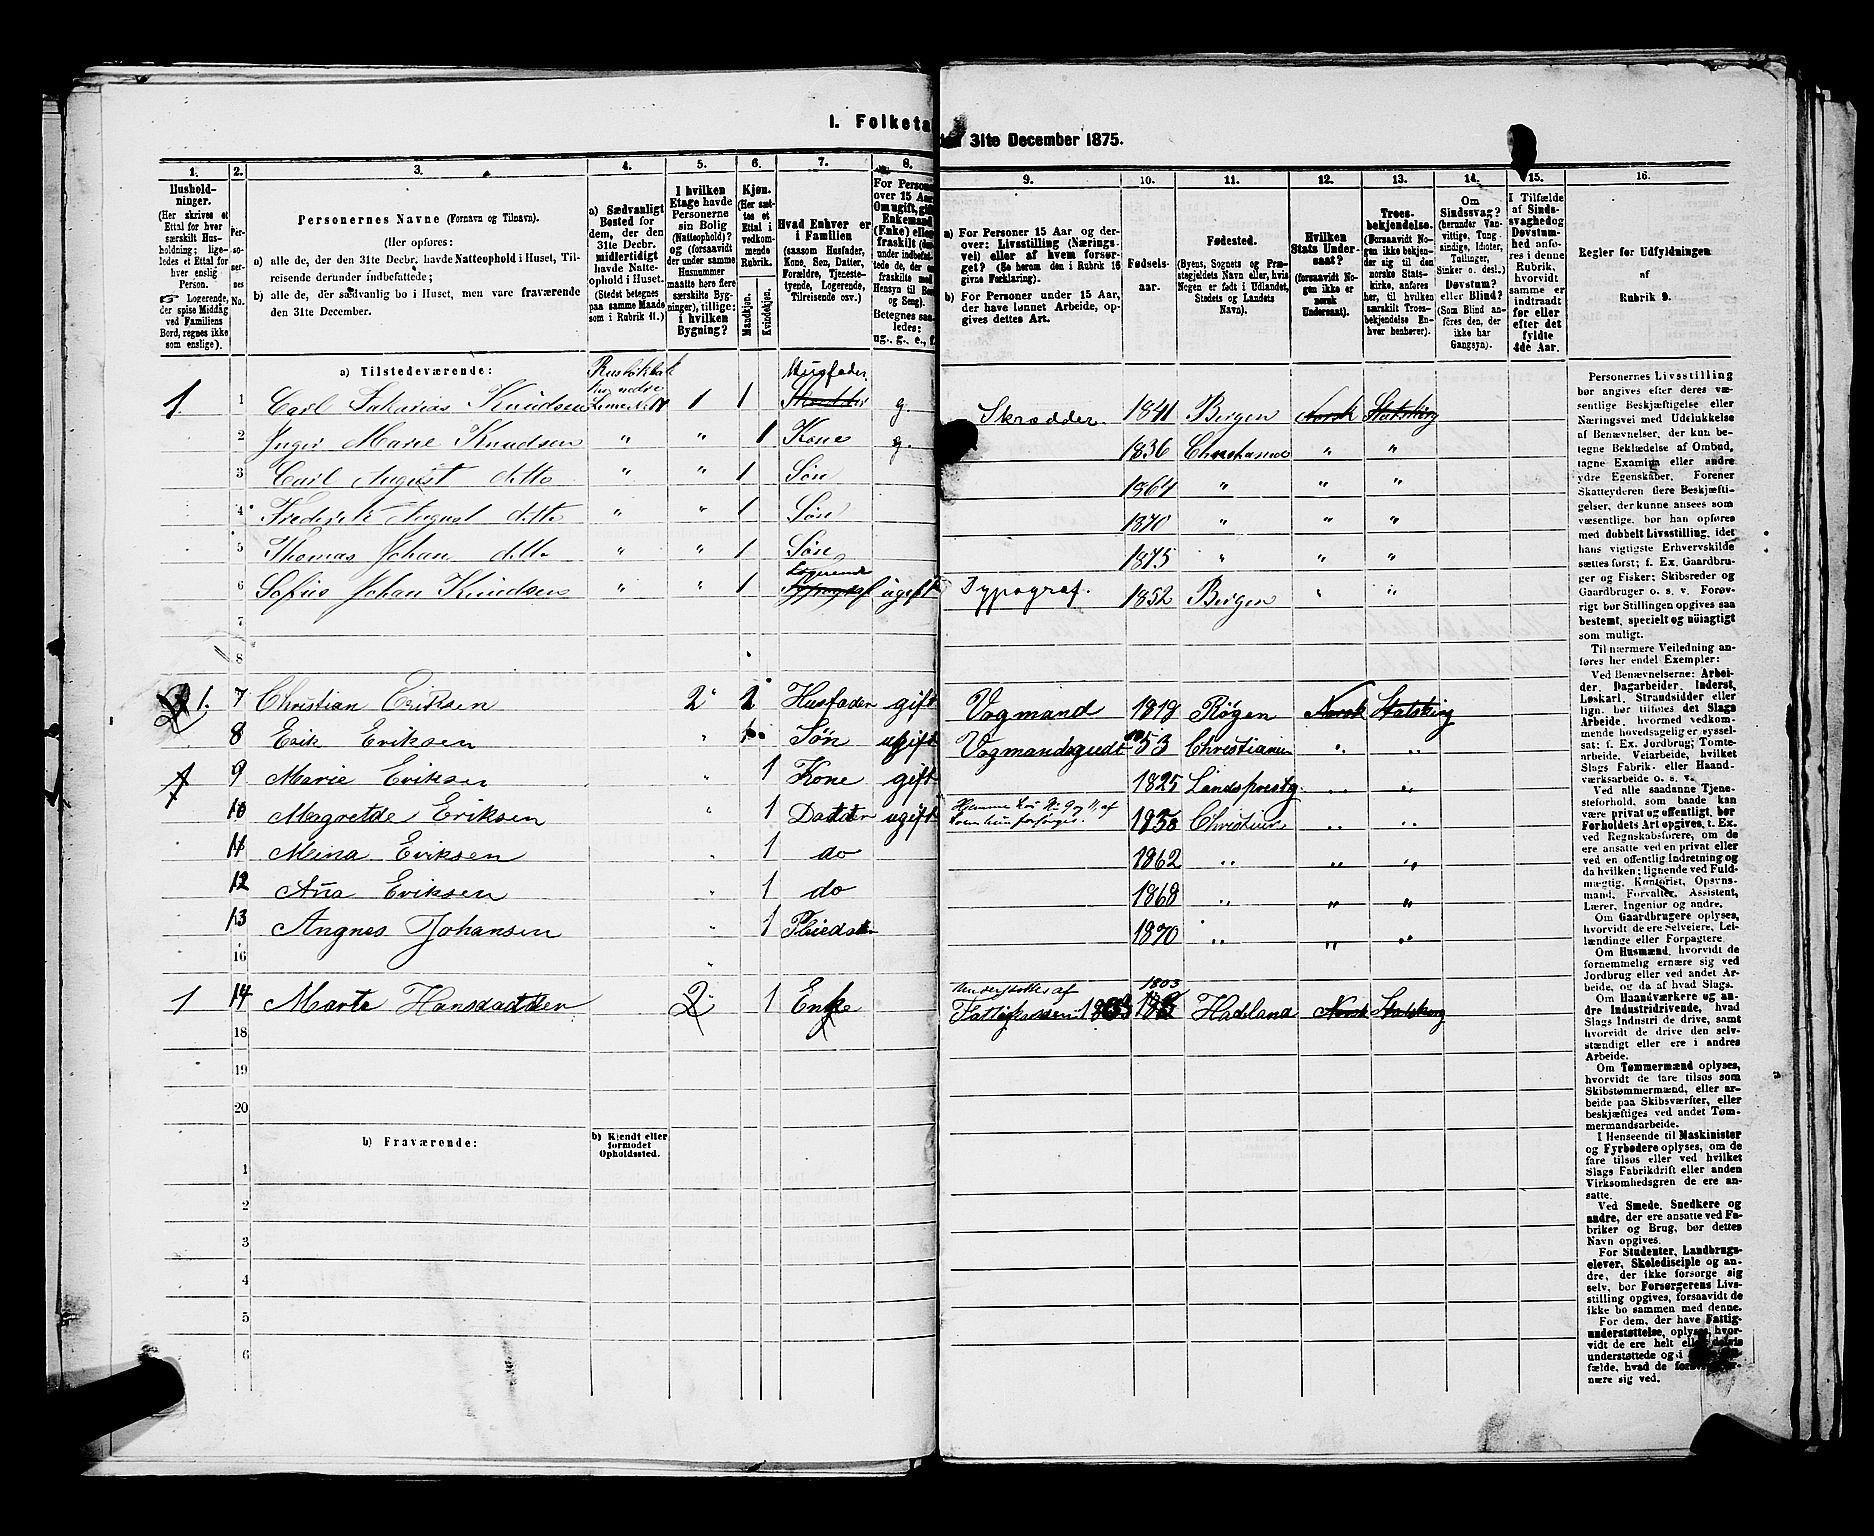 I. Folketa
31te December 1875.
1. 2. 3. 4. 5. 6. 7. 8.
9. 10. 11. 12. 13. 14. 15. 16.
Husholdninger.
(Her skrives et
Ettal for hver
særskilt Husholdning;
ligeledes et Ettal for
hver enslig
Person.
Logerende,
der spise Middag
ved Familiens
Bord, regnes ikke
som enslige).
Personernes No.
Personernes Navne (Fornavn og Tilnavn).
(Her opføres:
a) alle de, der den 31te Decbr. havde Natteophold i Huset, Tilreisende derunder indbefattede;
b) alle de, der sædvanlig bo i Huset, men vare fraværende
den 31te December.
a) Sædvanligt
Bosted for
dem, der den
31te Decbr.
midlertidigt
havde Natteophold i Huset.
(Stedst betegnes
paa samme Maade
som i Rubrik 11.)
I hvilken
Etage havde
Personerne
sin Bolig
(Natteophold)?
og (forsaavidt
der under samme
Husnummer
maatte høre flere
særskilte Bygninger), tillige:
i hvilken
Bygning?
Kjøn.
(Her sættes et
Ettal i
vedkommende
Rubrik.
Mandkjøn.
Kvindekjøn.
Hvad Enhver er
i Familien
(saasom Husfader,
Kone, Søn, Datter,
Forældre, Tjenestetyende, Logerende,
Tilreisende osv.)
For Person
over 15 Aar
Om ugift, gift
Enkemand
(Enke) eller
fraskilt
ug., g., e., f.
a) For Personer 15 Aar og derover: Livsstilling (Næringsvei) eller af hvem forsørget? (Se herom den i Rubrik 16
givne Forklaring).
b) For Personer under 15 Aar,
der have lønnet Arbeide, opgives dettes Art.
Fødselsaar.
Fødested.
(Byens, Sognets og Præstegjeldets Navn eller, hvis
Nogen er født i Udlandet,
Stedets og Landets
Navn).
Hvilken
Stats Undersaat?
(forsaavidt Nogen ikke er
norsk
Undersaat).
Troesbekjendelse.
(Forsaavidt Nogen ikke bekjender sig til den
norske Statskirke, anføres
her, til hvilken
særskilt Troesbekjendelse Enhver henhører).
Om
Sindssvag?
(herunder Vanvittige, Tungsindige, Idioter,
Tullinger,
Sinker o. desl.)
Døvstum?
eller Blind?
(Som Blind anføres den, der
ikke har
Gangsyn).
I Tilfælde
af Sindssvaghed og
Døvstumhed anføres i denne
Rubrik,
hvorvidt
samme er
indtraadt
før eller
efter det
fyldte
4de Aar.
Regler for Udfyldningen
af
Rubrik 9.
a) Tilstedeværende:
1 1 Carl Knudsen 1 1 Husfader g. Skrædder. 1841 Bergen Norsk Statskirg
2 Inger Marie Knudsen " " 1 Kone g. 1836 Christiania " "
3 Carl August ditto " " 1 Søn 1864 " " "
4 Frederik August ditto " " 1 Søn 1870 " " "
5 Thomas Johan ditto " " 1 Søn 1875 " " "
6 Sofus Johan Knudsen " " 1 Logerende ugift Typograf. 1852 Bergen " "
7
8
1. 7 Christian Eriksen 2 Husfader gift Vogmand 1819 Røgen Norsk Statskirg
8 Erik Eriksen " Søn ugift Vogmandsgudt 53 Christiania " "
9 Marie Eriksen " 1 Kone gift 1825 " "
10 Magretde Eriksen " 1 Datter ugift 1850 Christian " "
11 Meina Eriksen " 1 do 1862 " " "
12 Ana Eriksen " 1 do 1868 " " "
13 Angnes Johansen " 1 Pleiedatter 1870 " " "
16 "
1 14 Marte Hansdadtter 2 1 Enke Understøttes af Fattigkassen 1803 Hadeland Norsk Statskirg
18
19
20
b) Fraværende:
b) Kjendt eller
formodet
Opholdssted.
1
2
3
4
5
6
Personernes Livsstilling
bør angives efter deres væsentlige Beskjæftigelse eller
Næringsvei med Udelukkelse
af Benævnelser, der kun betegne Beklædelse af Ombud,
tagne Examina eller andre
ydre Egenskaber. Forener
Skatteyderen flere Beskjæftigelser, der kunne ansees som
væsentlige, bør han opføres
med dobbelt Livsstilling, idet
hans vigtigste Erhvervskilde
sættes først; f. Ex. Gaardbruger og Fisker; Skibsreder og
Gaardbruger o. s. v. Forøvrigt bør Stillingen opgives saa
bestemt, specielt og nøiagtigt
som muligt.
Til nærmere Veiledning anføres her endel Exempler:
Ved Benævnelserne: Arbeider, Dagarbeider, Inderst,
Løskarl, Strandsidder eller
lign. bør tilføies det Slags
Arbeide, hvormed vedkommende hovedsagelig er sysselsat; f. Ex. Jordbrug; Tomtearbeide, Veiarbeide, hvilket
Slags Fabrik- eller Haandværksarbeide o. s. v.
Ved alle saadanne Tjenesteforhold, som baade kan
være privat og offentligt, bør
Forholdets Art opgives, t. Ex.
ved Regnskabsførere, om de
ere ansatte ved en privat eller
ved en offentlig Indretning og
da hvilken; lignende ved Fuldmægtig, Kontorist, Opsynsmand, Forvalter, Assistent,
Lærer, Ingeniør og andre.
Om Gaardbrugere oplyses,
hvorvidt de ere Selveiere, Leilændinge eller Forpagtere.
Om Husmænd, hvorvidt de
fornemmelig ernære sig ved
Jordbrug eller ved andet Arbeide, og da af hvad Slags.
Om Haandværkere og andre Industridrivende, hvad
Slags Industri de drive, samt
hvorvidt de drive den selvstændigt eller ere i andres
Arbeide.
Om Tømmermænd oplyses,
hvorvidt de fare tilsøs som
Skibstømmermænd, eller arbeide paa Skibsværfter, eller
beskjæftiges ved andet Tømmermandsarbeide.
I Henseende til Maskinister
og Fyrbødere oplyses, om de
fare tilsøs eller ved hvilket
Slags Fabrikdrift eller anden
Virksomhedsgren de ere ansatte.
Ved Smede, Snedkere og
andre, der ere ansatte ved Fabriker og Brug, bør dettes
Navn opgives.
For Studenter, Landbrugselever, Skoledisciple og andre, der ikke forsørge sig
selv, bør Forsørgerens Livsstilling opgives, forsaavidt de
ikke bo sammen med denne.
For dem, der have Fattigunderstøttelse, oplyses, hvorvidt de ere helt eller delvis
understøttede og i
fælde, hvad de
nære sig ved.